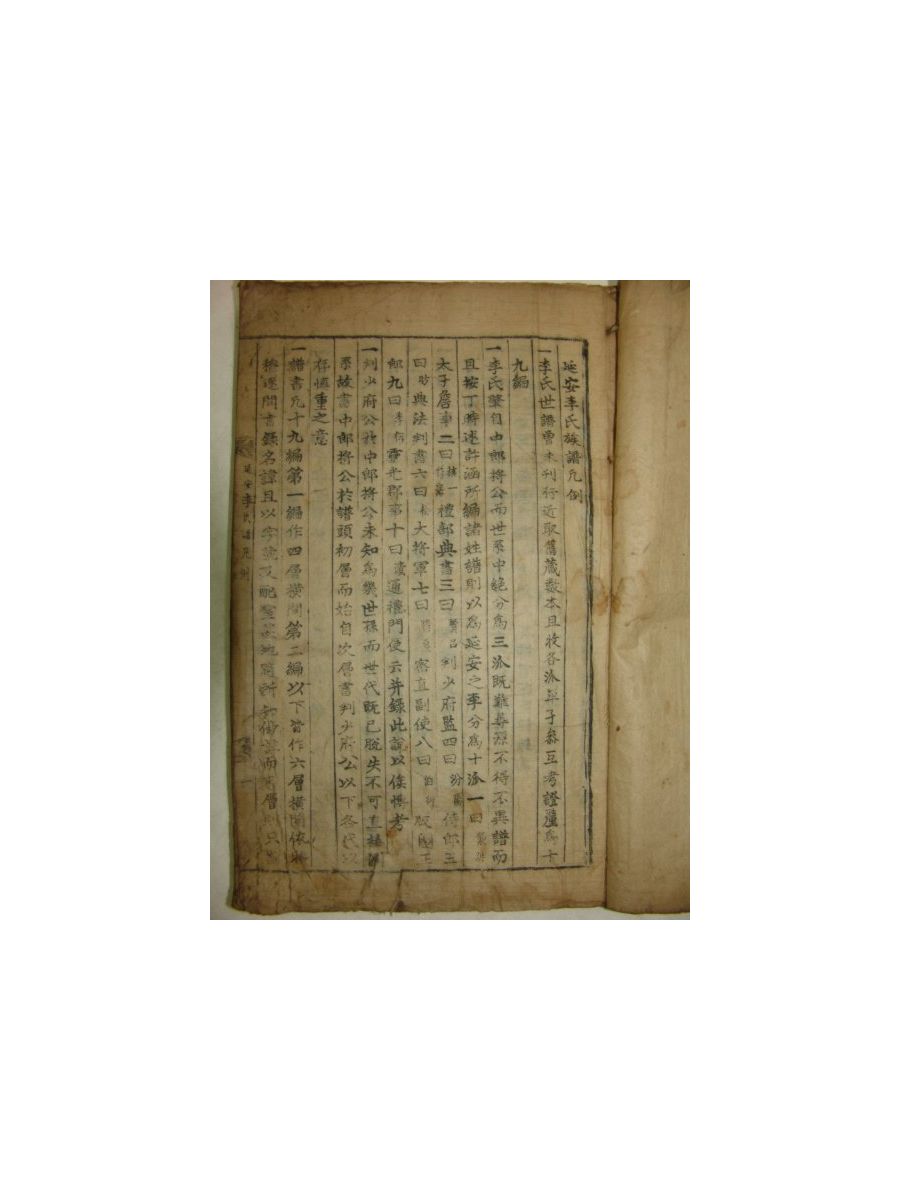 延安李氏族譜凡例
一李氏世譜曾未刊行近取舊藏數本且收各派單子參互考證釐爲十
九編
一李氏肇自中郎將公而世系中絶分爲三派旣難尋源不得不異譜而
且按丁時述許涵所編諸姓譜則以爲延安之李分爲十派一曰
太子詹事二曰 禮部典書三曰 判少府監四曰 侍郎五
曰 典法判書六曰 大將軍七曰 密直副使八曰 版圖正
郎九曰 靈光郡事十曰 通禮門使云并錄此說以俟博考
一判少府公於中郎將公未知爲幾世孫而世代旣已脫失不可直
系故書中郎將公於譜頭初層而始自次層書判少府公以下各代以
存愼重之意
一譜書凡十九編第一編作四層橫間第二編以下皆作六層橫間依
間書錄名諱且以字號及配 所 而 層則只
延安李氏譜凡例 一